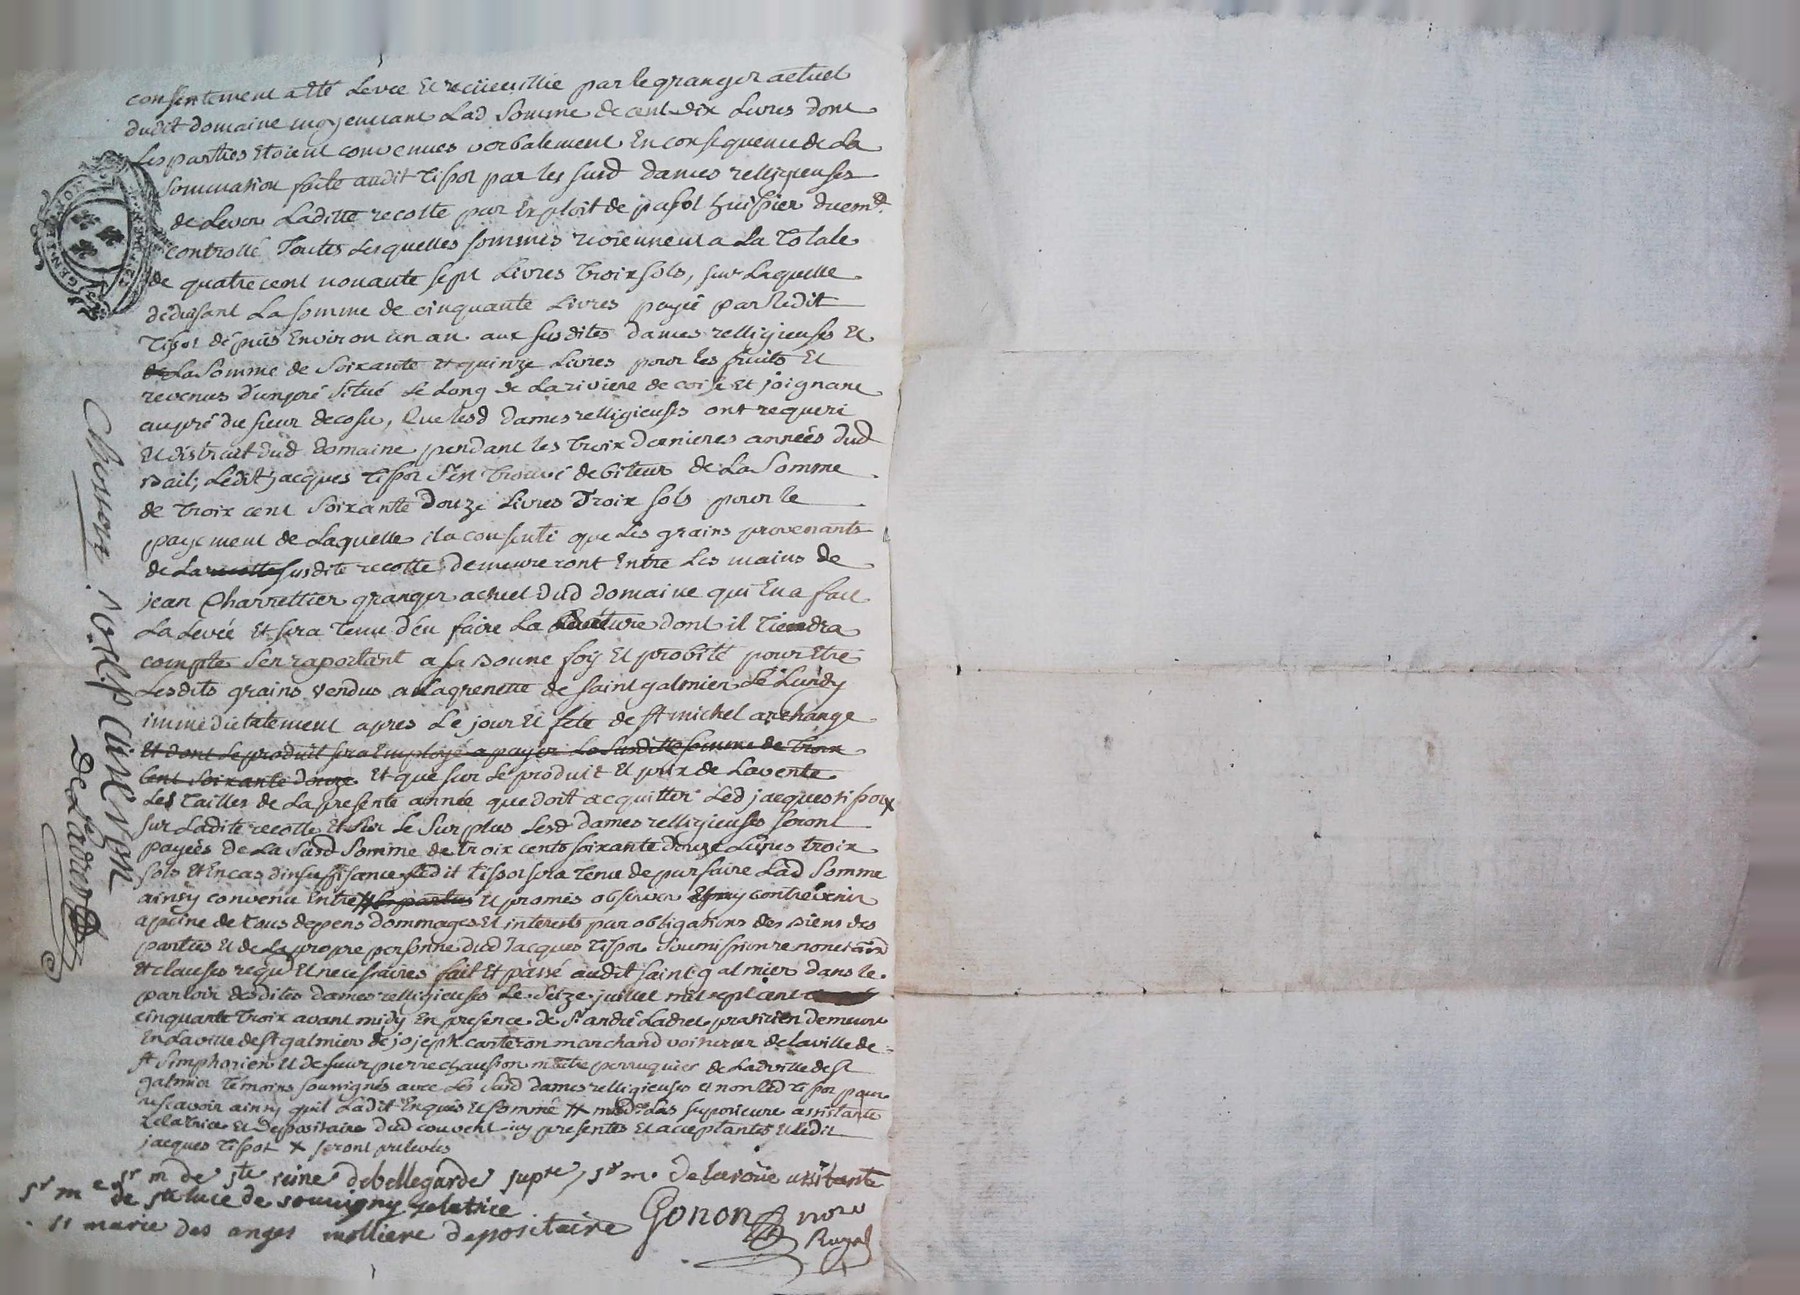 consentement a été Levée Et recüeuillie par le granger actuel
dudit domaine moyennant Lad Somme de cent dix Livres dont
Les parties Etoient convenues verbalement En consequence de La
sommation faite audit Tissot par les susd dames relligieuses
de Lever Laditte recolte par Exploit de huissier duem.t
controllé Toutes Lesquelles sommes reviennent a La Totale
de quatre cent nonante sept Livres Trois sols, sur Laquelle
déduisant La somme de cinquante Livres payée par Ledit
Tissot dépuis Environ un an aux susdites dames relligieuses Et
de La Somme de Soixante et quinze Livres pour les fruits Et
revenus d'un pré situé Le Long de La riviere de coise et joignant
au pré du sieur Que lesd dames relligieuses ont
Et distrait dud domaine pendant les Trois dernieres années dud
Bail; Ledit jacques Tissot S'en Trouvé debiteur de La Somme
de Trois cent Soixante Douze Livres Trois sols pour le
payement de Laquelle il a consenti que Les grains provenants
de La recolte susdite recolte, demeureront Entre Les mains de
jean Charrettier granger actuel dud domaine qui En a fait
La Levée Et sera Tenu d'en faire La dont il Tiendra
compte S'en raportant a sa Bonne foÿ Et probité pour Etre
Lesdits grains vendus a La grenette de saint galmier Le Lundy
immediatement apres Le jour Et fete de st michel archange
Et dont Le produit sera Employé a payer La Susditte somme de Trois
Cent Soixante Douze Et que sur Le produit Et prix de La vente
Les Tailles de La presente année que doit acquitter Led jacques tissot x
sur Ladite recolte Et sur Le Surplus Lesd dames relligieuses seront
payées de La Susd Somme de trois cents soixante douze Livres trois
sols Et En cas d'insuffisance Ledit tissot sera Tenu de parfaire Lad Somme
ainsy convenu Entre Les parties Et promés observer contrevenir
a peine de tous depens dommages Et interets par obligations des Biens des
parties Et de La propre personne dud Jacques Tissot Soumissions
Et clauses requis Et necessaires fait Et passé audit saint galmier dans le
parloir desdites dames relligieuses Le Seize juillet mil sept cent
cinquante Trois avant midy En presence de Sr andré Ladret praticien demeurt
En La ville de St galmier de joseph carteron marchand voiturier de la ville de
St Simphorien Et de sieur pierre chausson maitre perruquier de Lad ville de St
galmier Témoins soussignés avec Les Susd dames relligieuses et non Led tissot pour
ne sçavoir ainsy qu'il L'a dit Enquis Et Sommé # mesd.es Las superieure assistante
Zelatrice Et depositaire dud couvent icy presentes Et acceptantes Et Ledit
jacques Tissot x seront prelevés
Sr m de Ste reine debellegarde supre, Sr m. de laroüe assistante
Sr m de Ste luce de souvigny zelatrice
Sr marie des anges molliere depositaire Gonon nore
Royal
Chausson. J. carteron
De Ladret